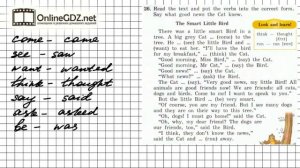 www.OnlineGDZ.net
come - came
see - saw
want - wanted
think - thought
say - said
ask - asked
be - was
26. Read the text and put the verbs into the correct form.
Say what good news the Cat knew.
The Smart Little Bird
There was a little smart Bird in a
tree. A big grey Cat ... (come) to the
tree. He ... (see) the little Bird and ...
(want) to eat her. "I'll have the bird
for my breakfast," ... (think) the Cat.
"Good morning, Miss Bird," ... (say) the Cat.
"Good morning, Mr Cat," ... (say) the Bird.
"Good news!" ... (say) the Cat.
"What news?" ... (ask) the Bird.
The Cat ... (say), "Very good news, my little Bird! All
animals are good friends now! We are friends: all cats,
dogs and birds. Come to me! I want to speak to you."
But the little Bird ... (be) very smart.
"Of course, you are my friend. But I see many dogs
and they are on their way to this tree."
"Oh, dogs! I must go home!" said the Cat.
"Oh, why, my dear friend? The dogs
are our friends, too," said the Bird.
"I think, they don't know the news,"
said the Cat and ran home.
Look and learn!
think — thought
run — ran